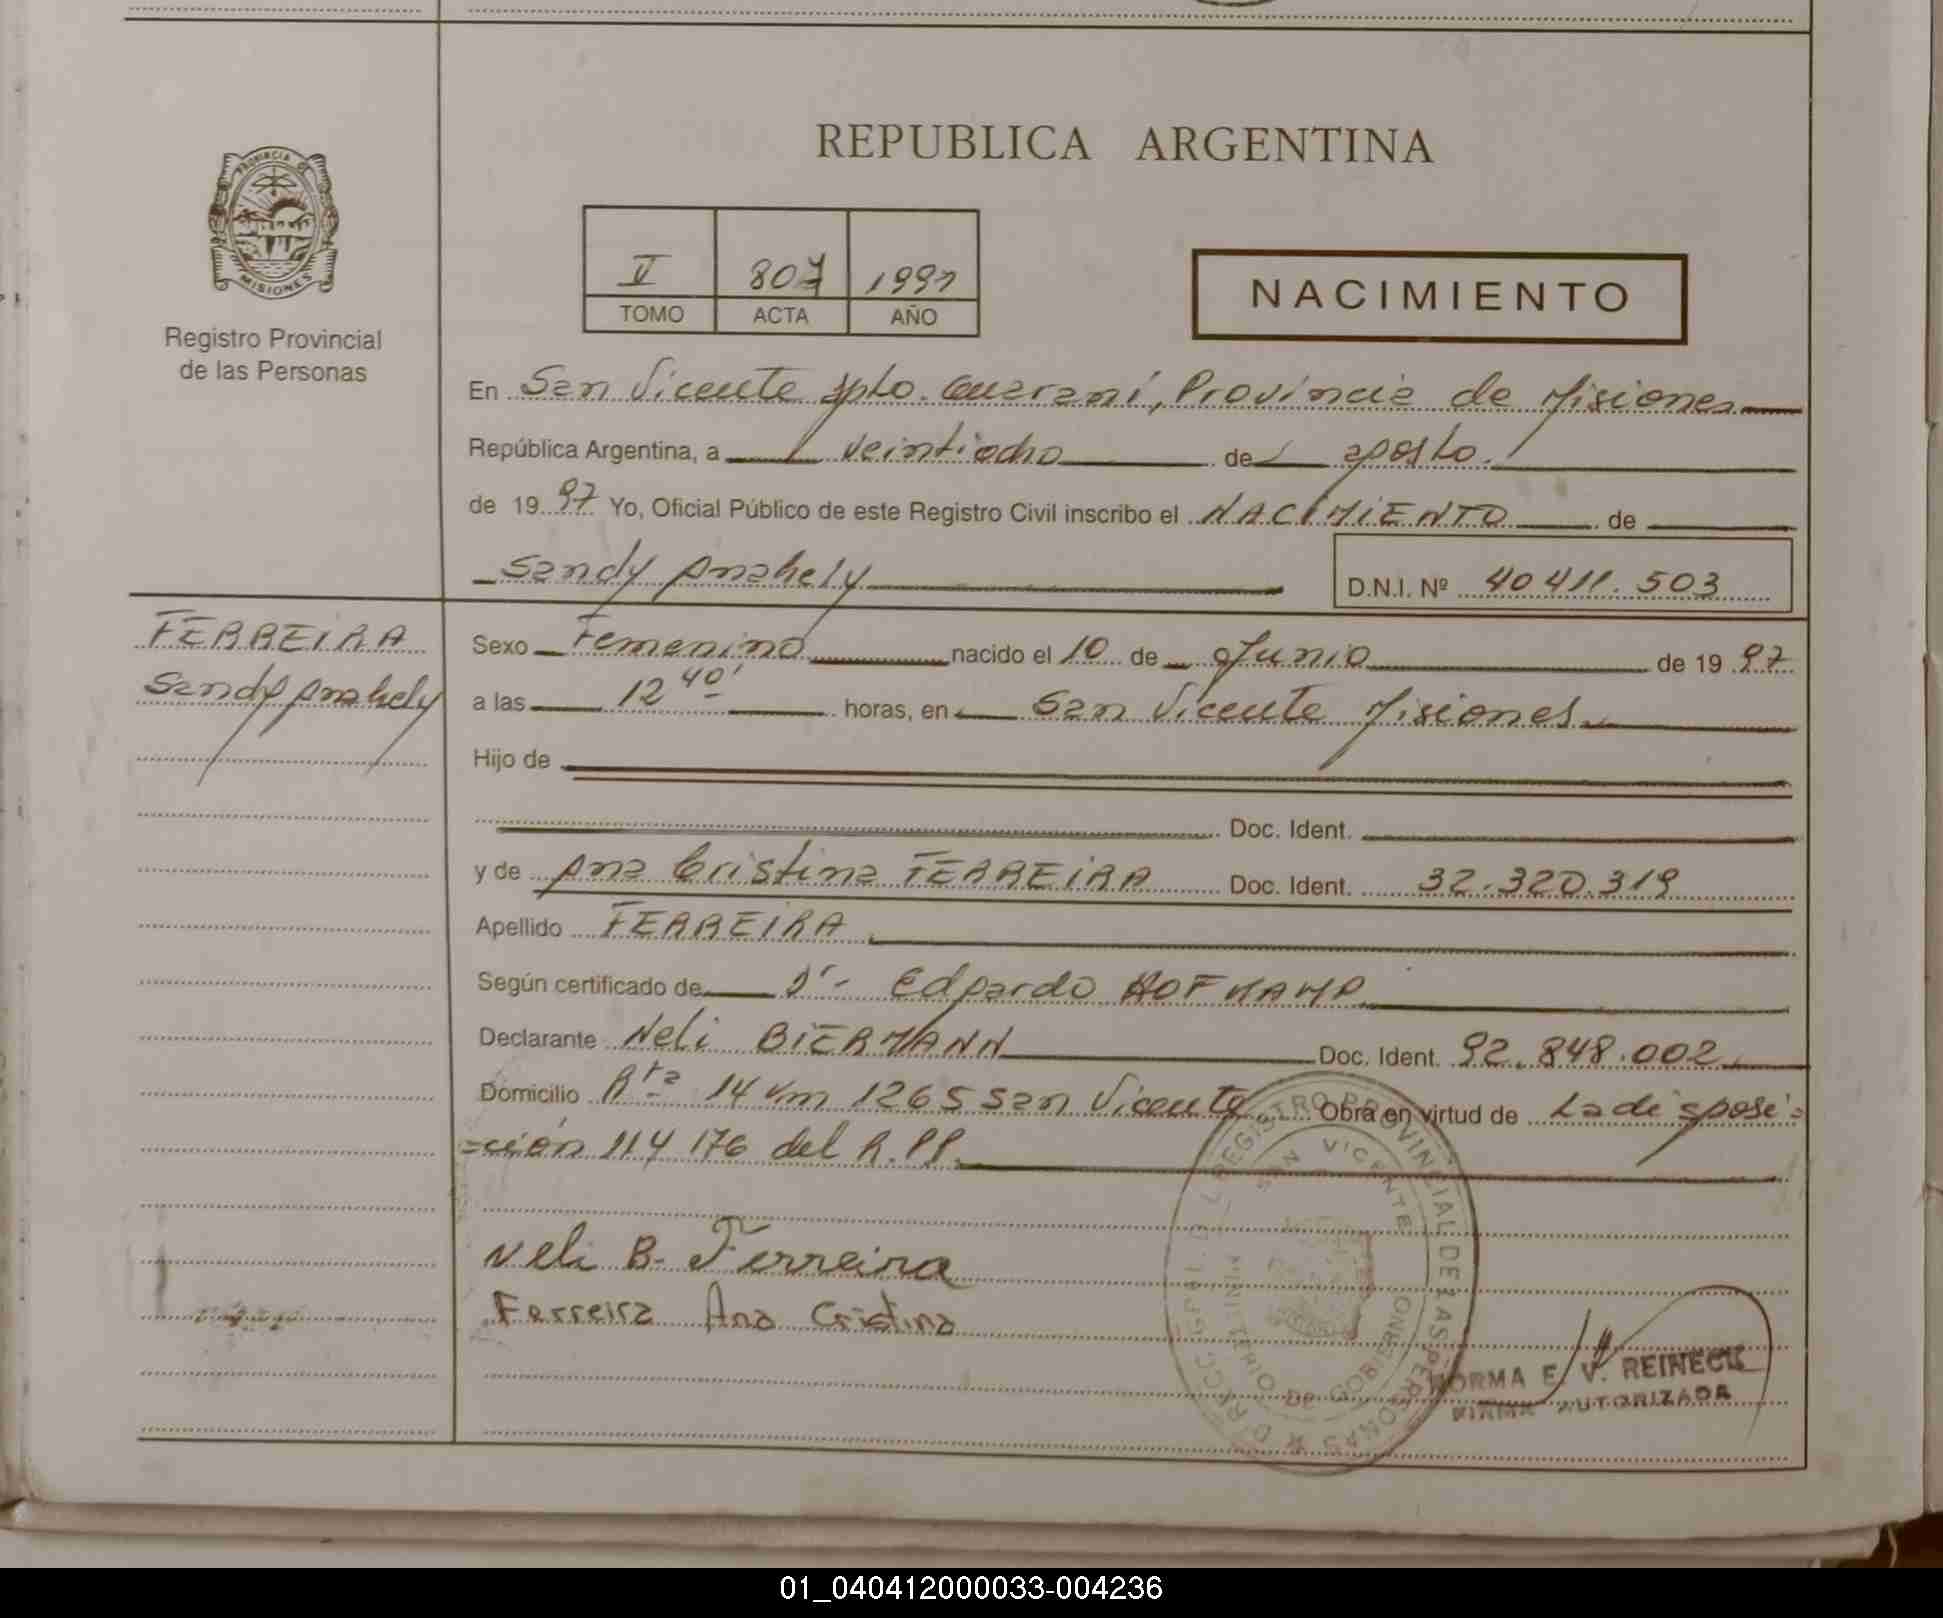 REPUBLICA ARGENTINA
PROVINCIA DE MISIONES
Registro Provincial
de las Personas
V 807 1997
TOMO ACTA AÑO
NACIMIENTO
En San Vicente Dpto. Guaraní, Provincia de Misiones
República Argentina, a veintiocho de agosto
de 1997 Yo, Oficial Público de este Registro Civil inscribo el NACIMIENTO de
Sandy Anahely D.N.I. Nº 40411.503
FERREIRA
Sandy Anahely
Sexo Femenino nacido el 10 de Junio de 1997
a las 12 40' horas, en San Vicente Misiones
Hijo de
Doc. Ident.
y de Ana Cristina FERREIRA Doc. Ident. 32.320.319
Apellido FERREIRA
Según certificado de Dr- Edgardo HOFMANN
Declarante Neli BIERMANN Doc. Ident. 92.848.002
Domicilio Rta 14 km 1265 San Vicente Obra en virtud de La disposi=
=ción 114176 del R.PP.
Neli B. Ferreira
Ferreira Ana Cristina
REGISTRO PROVINCIAL DE LAS PERSONAS
SAN VICENTE
DE GOBIERNO
NORMA E. V. REINECK
FIRMA AUTORIZADA
01_040412000033-004236